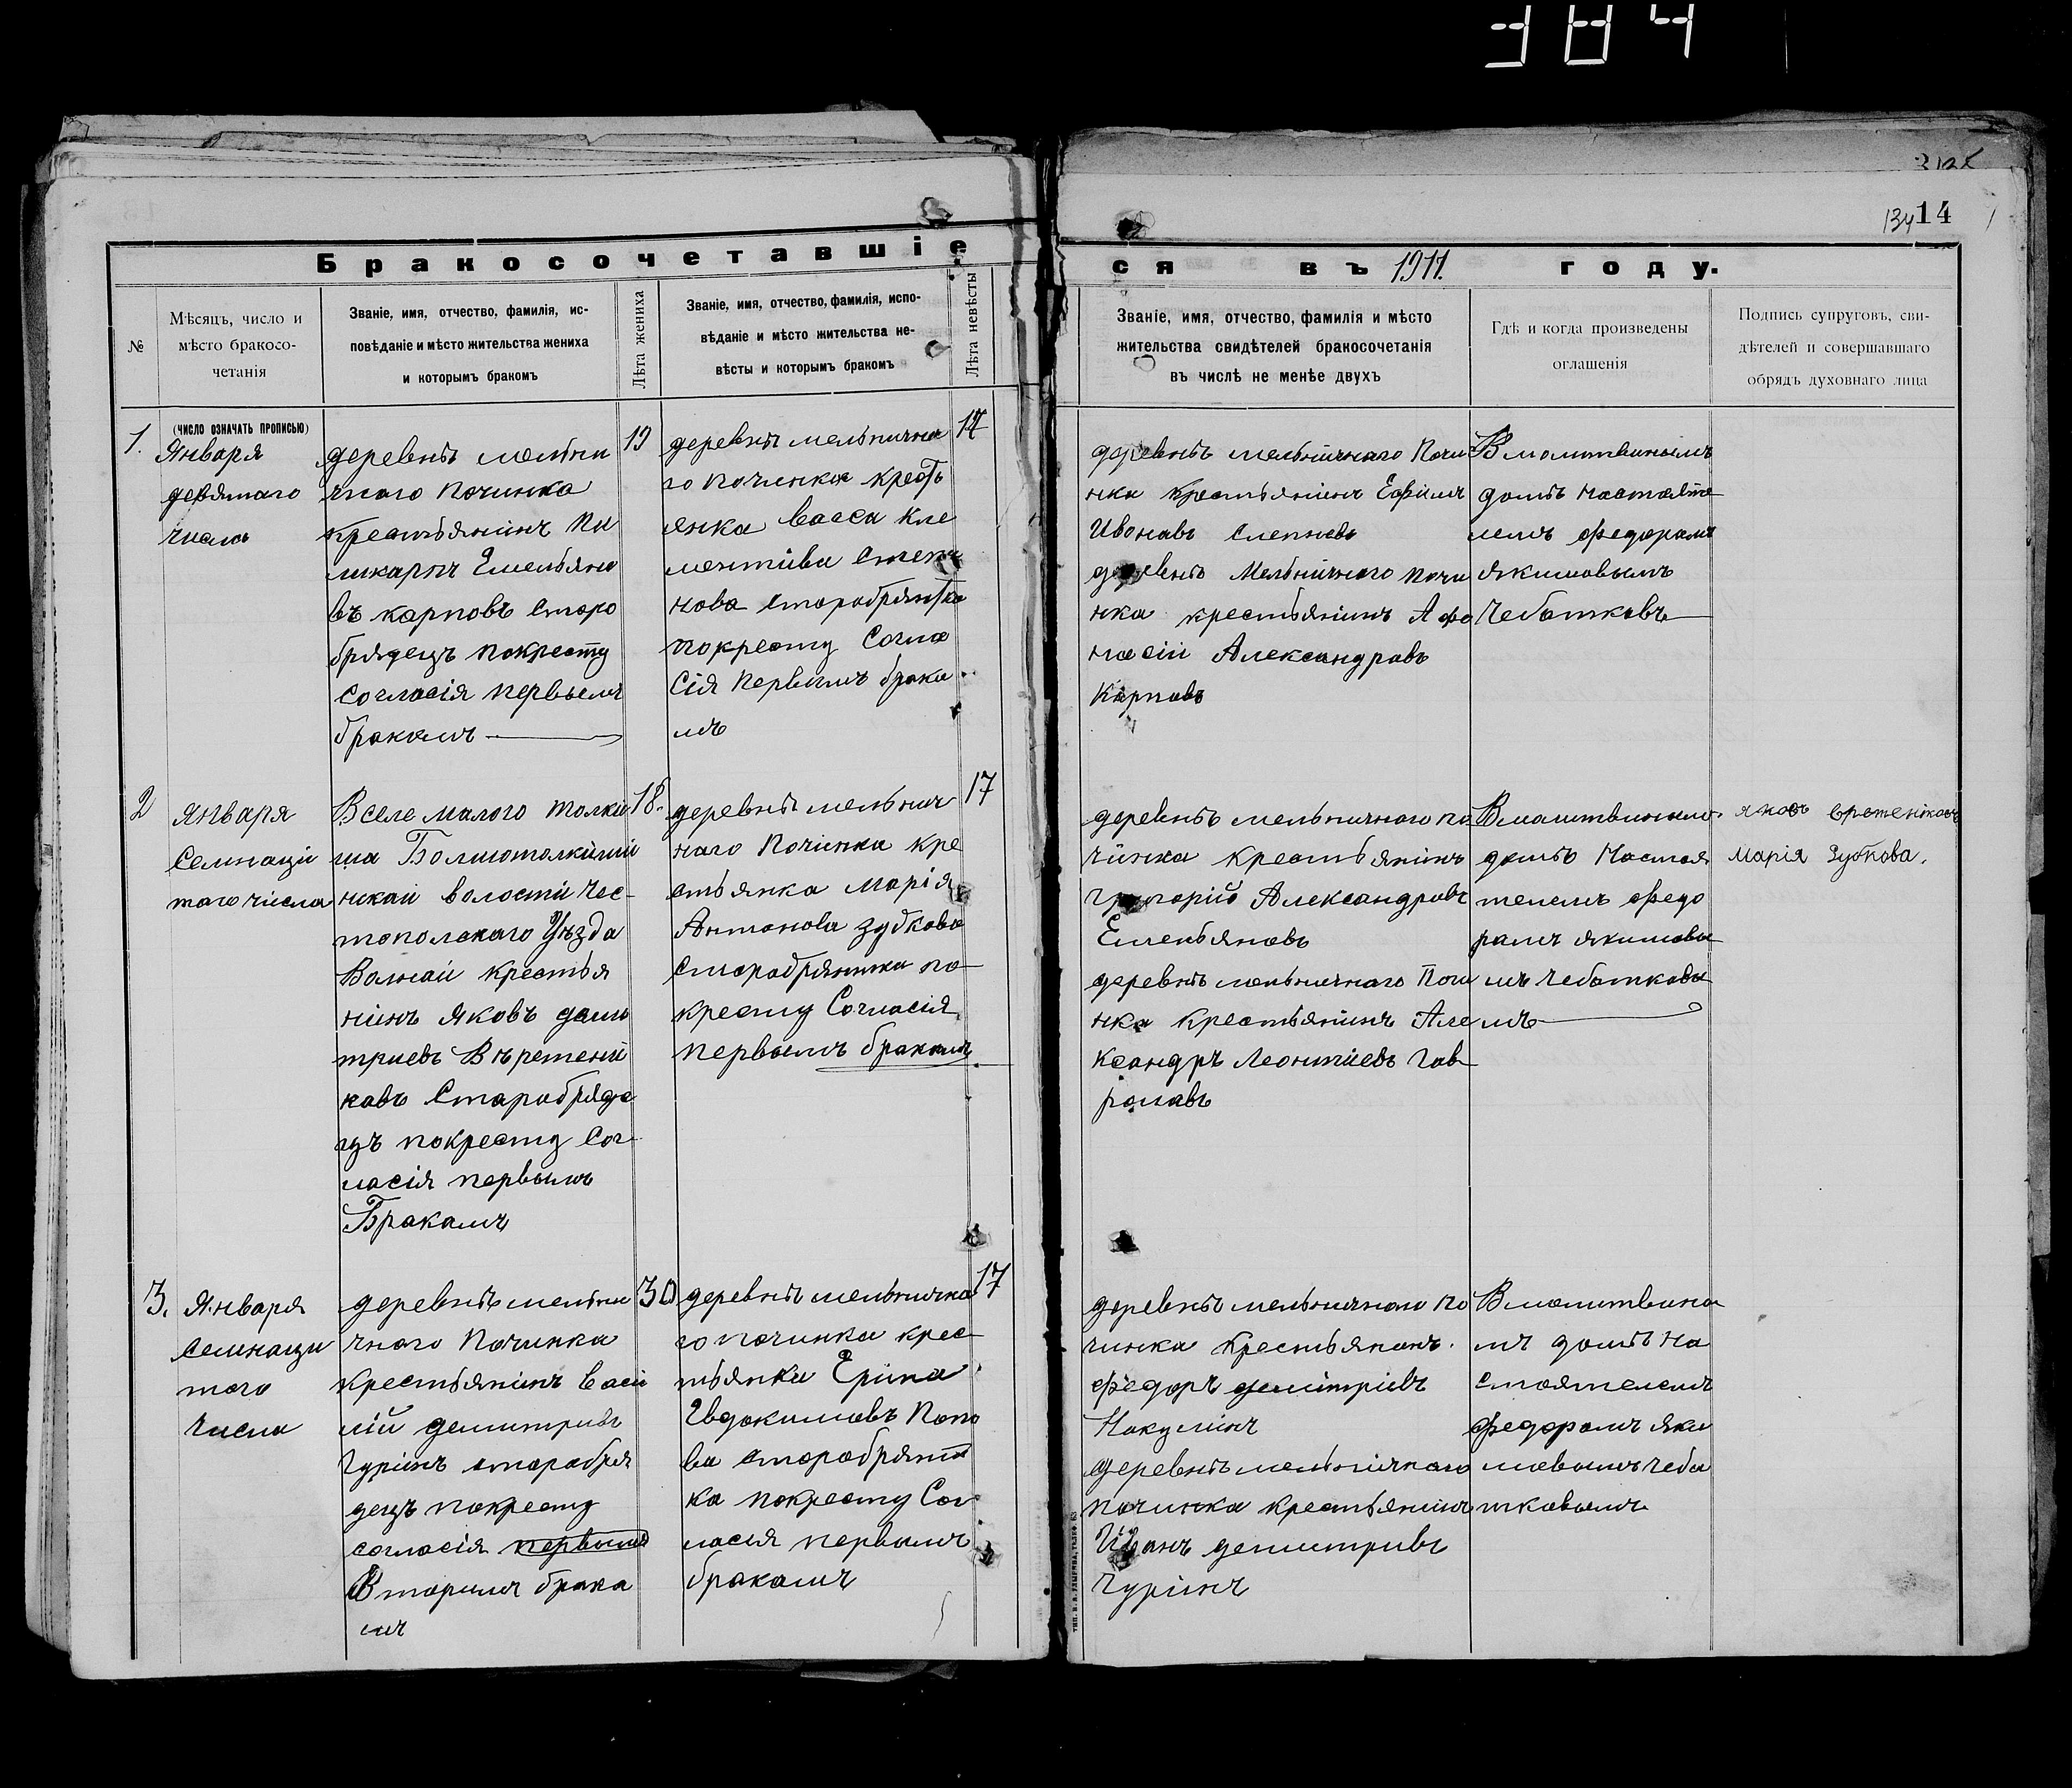 384
134 14
Бракосочетавшіе
ся въ 1911. году.
№
Мѣсяцъ, число и
мѣсто бракосо-
четанія
Званіе, имя, отчество, фамилія, ис-
повѣданіе и мѣсто жительства жениха
и которымъ бракомъ
Лѣта жениха
Званіе, имя, отчество, фамилія, испо-
вѣданіе и мѣсто жительства не-
вѣсты и которымъ бракомъ
Лѣта невѣсты
Званіе, имя, отчество, фамилія и мѣсто
жительства свидѣтелей бракосочетанія
въ числѣ не менѣе двухъ
Гдѣ и когда произведены
оглашенія
Подпись супруговъ, сви-
дѣтелей и совершавшаго
обрядъ духовнаго лица
(число означать прописью)
1.
Января
девятаго
числа
деревнѣ мельни
чнаго Починка
крестьянинъ Пи
ликарпъ Емельяно
въ карповъ старо
брядецъ покресту
согласія первымъ
бракамъ
19
деревнѣ мельнична
го починка крест
янка Васса Кле
монтіва степа
нова старобрятка
покресту Согла
сія Первымъ брака
мъ
17
деревнѣ мельничнаго Почи
нка крестьянинъ Ефимъ
Ивонавъ Слепневъ
деревнѣ Мельничнаго Почи
нка крестьянинъ Афо
насіи Александравъ
Карповъ
В молитвинымъ
домѣ настояте
лемъ федорамъ
якимовымъ
Чебатковъ
2
января
Семнаци
таго числа
Вселе малого толки
ша Болшотолкиши
нскаи волости Чес-
тополскаго Уѣзда
Волнаи крестья
нинъ Яковъ дами
триевъ Вѣретени
ковъ Старабряде
цъ покресту Сог-
ласія первымъ
Бракамъ
18.
деревнѣ мельнич
наго Починка кре
стьянка Марія
Антонова зубкова
Старабрятка по
кресту Согласія
первымъ бракамъ
17
деревнѣ мельничнаго по
чинка крестьянинъ
Григорій Александравъ
Емельяновъ
деревнѣ мельничнаго Почи
нка крестьянинъ Але
ксандръ Леонтіевъ Гав
риловъ
Вмалитвинамъ
домѣ Настоя
телемъ федо
рамъ якимовы
мъ Чебаткавы
мъ
яковъ вретениковъ
Марія Зубкова.
3.
Января
Семнаци
того
числа
деревнѣ мельни
чнаго Починка
крестьянинъ Васи
лій демитривъ
Чуринъ старобря
децъ покресту
согласія первымъ
Вторымъ брака
мъ
30
деревнѣ мельнична
го починка крес
тьянка Ерина
Евдокимовъ Попо
ва старобрятт
ка покресту Сог
ласія первымъ
бракамъ
17
деревнѣ мельничнаго по
чинка крестьянинъ
федоръ демитривъ
Накулинъ
деревнѣ мельничнаго
починка крестьянинъ
Иванъ демитривъ
Чуринъ
В молитвина
мъ домѣ На
стоятелемъ
федорамъ Яки
мовымъ чеба
тковымъ